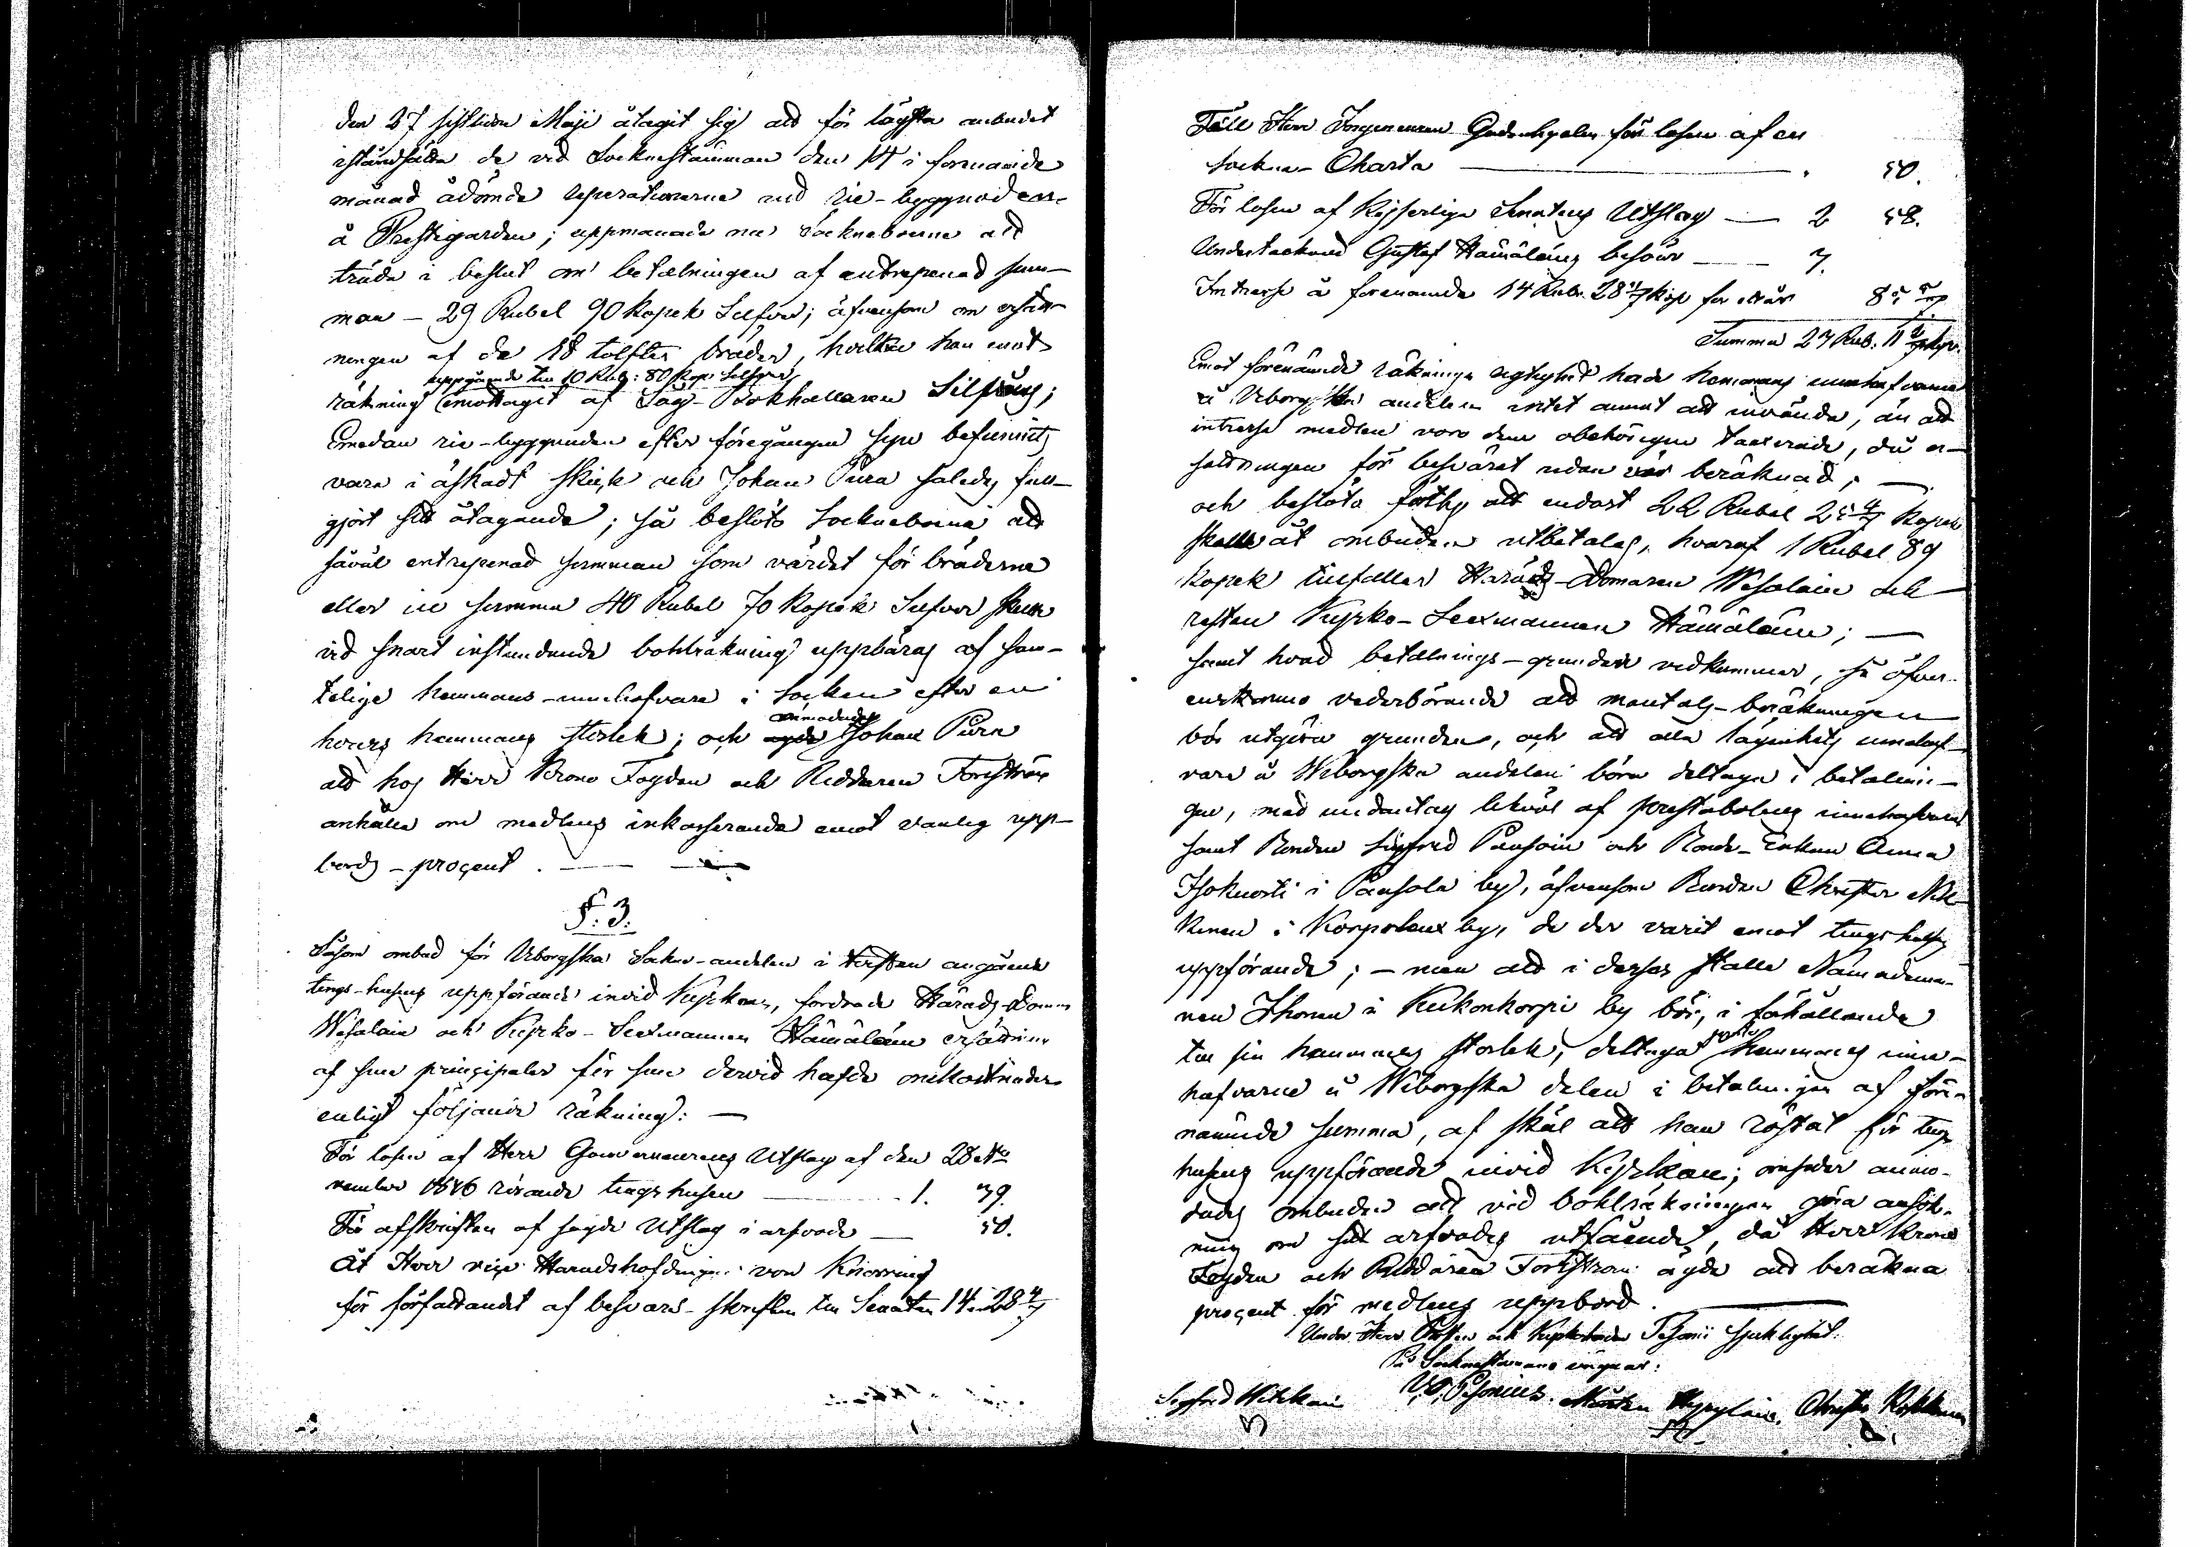 den 27 sistliden Maji åtagit sig att för lägsta anbudet
iståndsätta de vid Socknestämman den 14 i förnämnde
månad ådömde reperationerne vid rie-byggnaderne
å Prestgården; uppmanade nu Sockneboerne att
träda i beslut om betalningen af entreprenad sum-
man - 29 Rubel 90 kopek Silfver; äfvensom om ersätt-
ningen af de 18 tolfter bräder, hvilka han emot
uppgående till 10 Rub: 80 kop: Silfver
räkning emottagit af Såg-Bokhållaren Silfvius;
Emedan rie-byggnaden efter föregången syn befunnits
vara i åstadt skick och Johan Pura således full-
gjort sitt åtagande; så beslöto Sockneboerne att
såväl entreprenad summan som värdet för bräderne
eller in summa 40 Rubel 70 kopek Silfver skulle
vid snart instundande bohlräkning uppbäras af sam-
telige hemmans-innehafvare i Socken efter en
hvars hemmans storlek; och anmodades Johan Pura
att hos Herr Krono Fogden och Riddaren Forsström
anhålla om medlens inkasserande emot vanlig upp-
bords-procent.
§. 3.
Såsom ombud för Viborgska Sockne-andelen i tvisten angående
tings-husets uppförande invid Kyrkan, fordrade Härads-Domaren
Wesalain och Kyrko-Sexmannen Hämäläin ersättning
af sine principaler för sine dervid hafde omkostnader
enligt följande räkning: —
För lösen af Herr Gouverneurens Utslag af den 28 No-
vember 1846 rörande tingshusen — 1. 79.
För afskriften af sagde Utslag i arfvode — 50.
Åt Herr vice Häradshöfdingen von Knorring
för författandet af besvärs-skriften till Senaten 14 28 4/7
Till Herr Ingenieuren för lösen af en
Sockne-Charta — 50.
För lösen af Kejserliga Senatens Utslag — 2 58.
Undertecknad Gustaf Hämäläins besvär — 7.
Intresse å förenämnde 14 Rub. 28 4/7 kop för ett år 85 5/7
Summa 27 Rub. 11 kop.
Emot förenämnde räknings rigtighet hade hemmans innehafvarne
å Viborgska andelen intet annat att invända, än att
intresse medlen voro dem obehörigen taxerade, då er-
sättningen för besväret redan var beräknad; —
och beslöto förthy att endast 22 Rubel 25 4/7 kopek
skulle åt ombuden utbetalas, hvaraf 1 Rubel 89
kopek tillfaller Härads-Domaren Wesalain och
resten Kyrko-Sexmannen Hämäläin; —
samt hvad betalnings-grunden vedkommer, så öfver-
enskommo vederbörande att mantals-beräkningen
bör utgöra grunden, och att alla lägenhets innehaf-
vare å Wiborgska andelen böra deltaga i betalnin-
gen, med undantag likväl af prestabolens innehafvare
samt Bonden Sigfred Pausoin och Bonde-Enkan Anna
i Pausola by, äfvensom Bonden Christer
i Korpolax by, de der varit emot tingshusets
uppförande; - men att i dessas ställe Nämndeman-
nen Ihonen i Kukonkorpi by bör, i förhållande
till sin hemmans storlek, deltaga hemmans inne-
hafvarne å Wiborgska delen i betalningen af före-
nämnde summa, af skäl att han röstat för tings
husets uppförande invid Kyrkan; omsider anmo-
dades ombuden att vid bohlräkningen göra ansök-
ning om sitt arfvodes utfående, då Herr Krono
Fogden och Riddaren Forsström ägde att beräkna
procent för medlens uppbörd.
Under Herr Prosten och Kyrkoherden sjuklighet.
På Socknestämmans vägnar:
Sigfred Mårten Christer